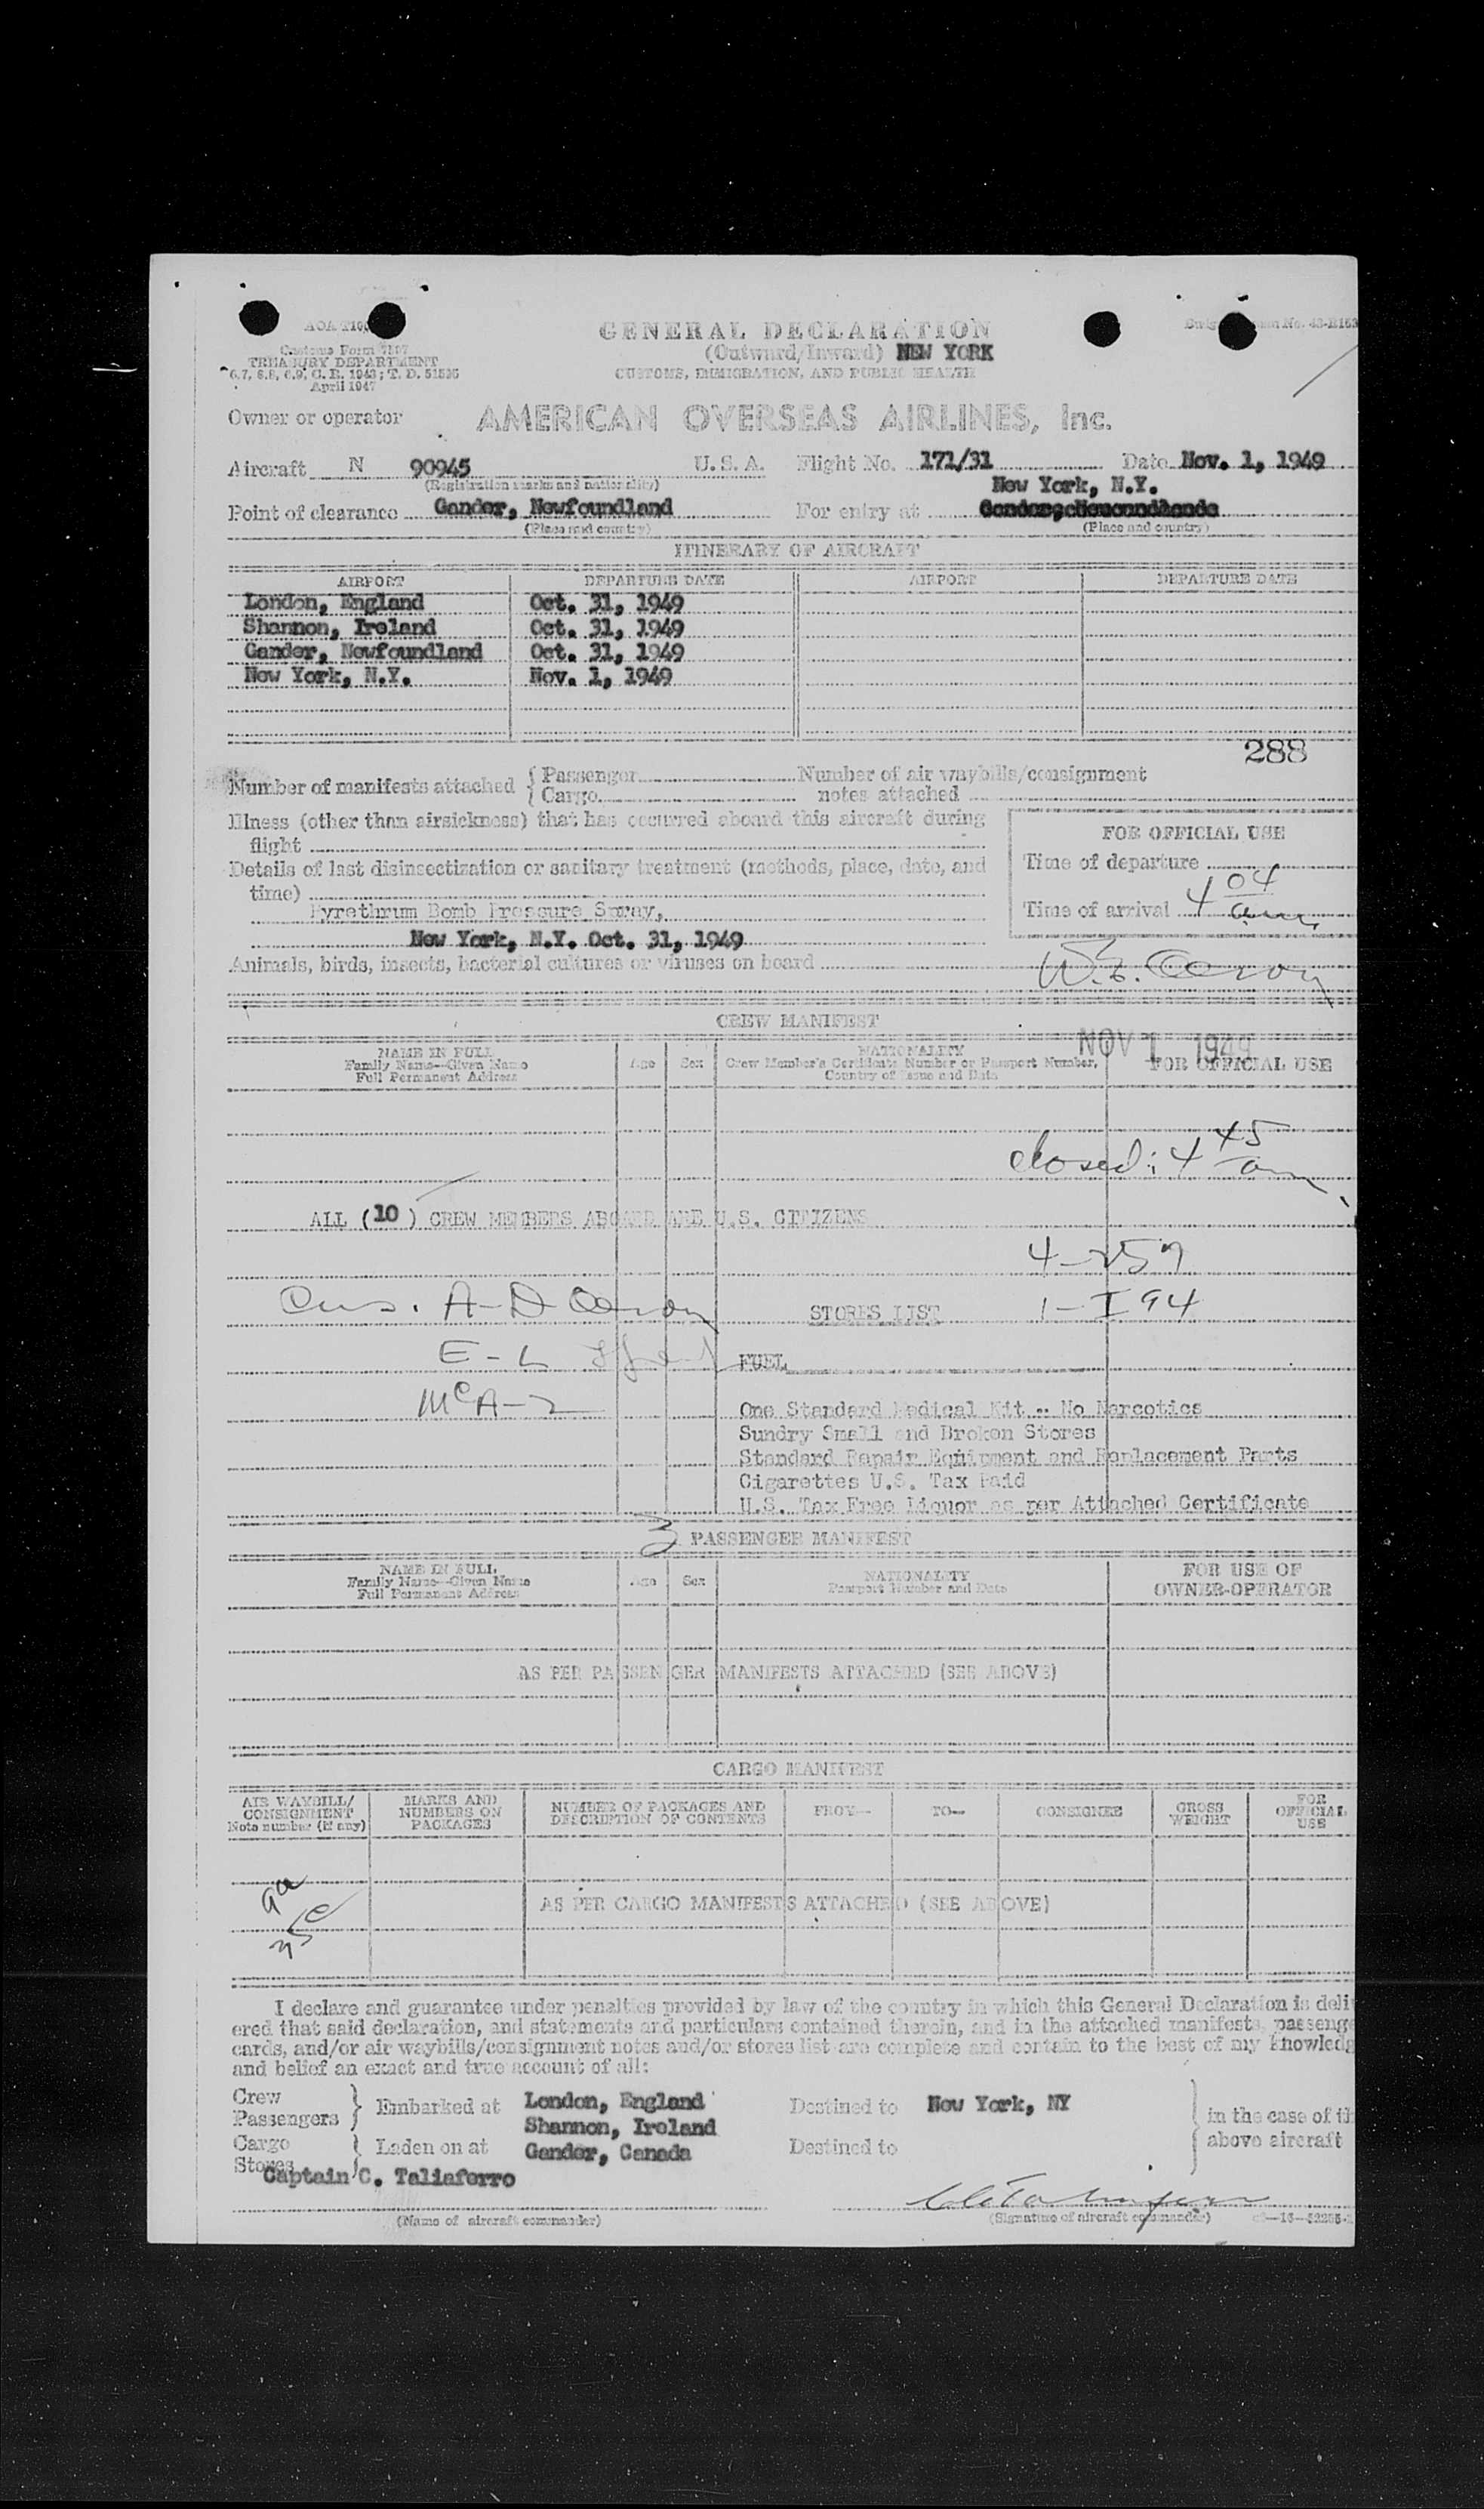 GENERAL DECLARATION
(Outward/Inward) NEW YORK
CUSTOMS, IMMIGRATION, AND PUBLIC HEALTH
Customs Form 7507
TREASURY DEPARTMENT
April 1947
Owner or operator AMERICAN OVERSEAS AIRLINES, Inc.
Aircraft N 90945 U. S. A. Flight No. 171/31 Date Nov. 1, 1949
(Registration marks and nationality)
New York, N.Y.
Point of clearance Gander, Newfoundland For entry at
(Place and country) (Place and country)
ITINERARY OF AIRCRAFT
AIRPORT DEPARTURE DATE AIRPORT DEPARTURE DATE
London, England Oct. 31, 1949
Shannon, Ireland Oct. 31, 1949
Gander, Newfoundland Oct. 31, 1949
New York, N.Y. Nov. 1, 1949
288
Number of manifests attached { Passenger Number of air waybills/consignment
{ Cargo notes attached
Illness (other than airsickness) that has occurred aboard this aircraft during
flight
FOR OFFICIAL USE
Time of departure
Details of last disinsectization or sanitary treatment (methods, place, date, and
time)
Time of arrival 4 04 am
Pyrethrum Bomb Pressure Spray,
New York, N.Y. Oct. 31, 1949
Animals, birds, insects, bacterial cultures or viruses on board
CREW MANIFEST
NOV 1 1949
NAME IN FULL
Family Name—Given Name
Full Permanent Address
Age Sex
NATIONALITY
Crew Member's Certificate Number or Passport Number,
Country of Issue and Date
FOR OFFICIAL USE
closed: 4 45 am
ALL (10) CREW MEMBERS ABOARD ARE U.S. CITIZENS
4-259
STORES LIST 1-I 94
E-L
FUEL
McA-2
One Standard Medical Kit -- No Narcotics
Sundry Small and Broken Stores
Standard Repair Equipment and Replacement Parts
Cigarettes U.S. Tax Paid
U.S. Tax Free Liquor as per Attached Certificate
3 PASSENGER MANIFEST
NAME IN FULL
Family Name—Given Name
Full Permanent Address
Age Sex
NATIONALITY
Passport Number and Date
FOR USE OF
OWNER-OPERATOR
AS PER PASSENGER MANIFESTS ATTACHED (SEE ABOVE)
CARGO MANIFEST
AIR WAYBILL/
CONSIGNMENT
Note number (if any)
MARKS AND
NUMBERS ON
PACKAGES
NUMBER OF PACKAGES AND
DESCRIPTION OF CONTENTS
FROM— TO— CONSIGNEE
GROSS
WEIGHT
FOR
OFFICIAL
USE
9a
35c
AS PER CARGO MANIFESTS ATTACHED (SEE ABOVE)
I declare and guarantee under penalties provided by law of the country in which this General Declaration is deliv
ered that said declaration, and statements and particulars contained therein, and in the attached manifests, passenge
cards, and/or air waybills/consignment notes and/or stores list are complete and contain to the best of my knowledg
and belief an exact and true account of all:
Crew
Passengers } Embarked at London, England Destined to New York, NY
Shannon, Ireland
Cargo
Stores } Laden on at Gander, Canada Destined to
in the case of th
above aircraft
Captain C. Taliaferro
(Name of aircraft commander) (Signature of aircraft commander)